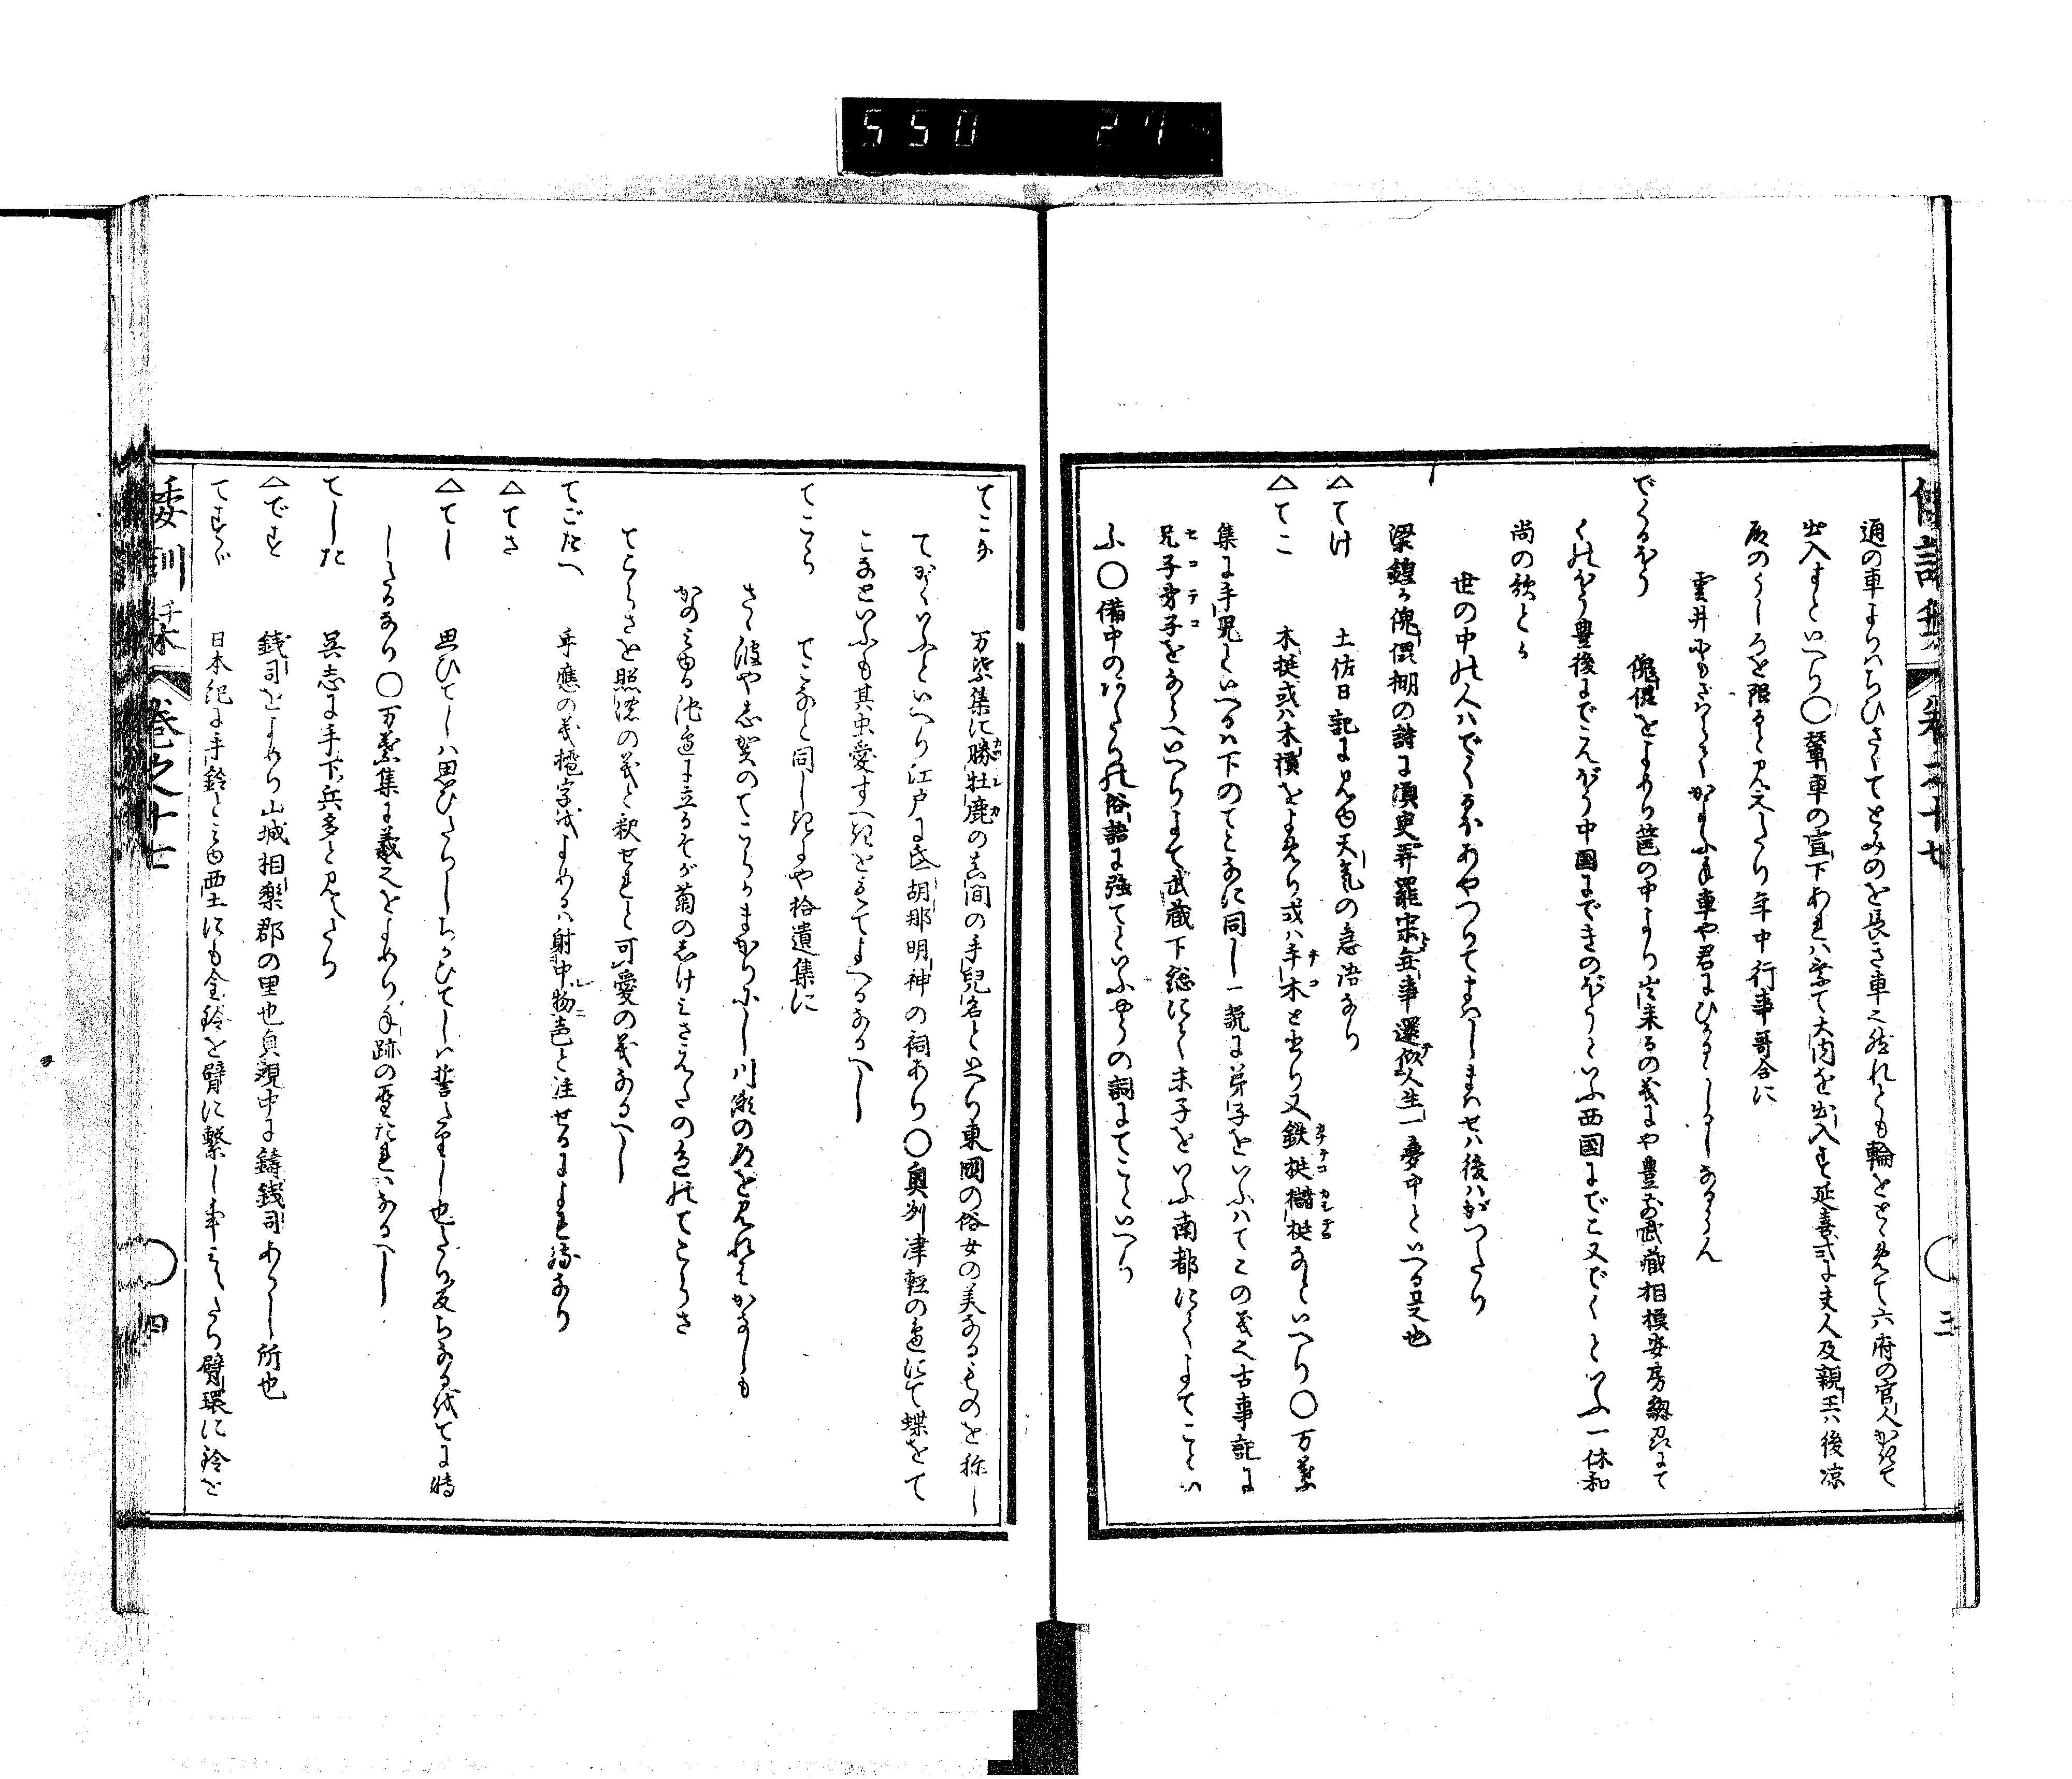 550 27
通の車よりハちひさくてとみのを長き車之然れとも輪をとゝめて六府の官人かきて
出入すといへり〇輦車の宣下あれハ乗て大内を出入す延喜式に夫人及親王ハ後涼
殿のうしろを限ると見えたり年中行事哥合に
雲井にもさはらてかよふ手車や君にひかるゝしるしなるらん
でくるばう 傀儡をよめり筥の中より出来るの義にや豊前武蔵相模安房総州にて
くれぼう豊後にでこんぼう中国にできのぼうといふ西国にでこ又でくといふ一休和
尚の歌とく
世の中の人ハでくるぼあやつりてまはしまハせハ後ハがつたり
梁鍠か傀儡棚の詩に須臾弄罷寂無事還似人生一夢中といへる是也
△てけ 土佐日記に見ゆ天気の急語なり
△てこ 木梃或ハ木横をよめり或ハ手木と書り又鉄梃櫧梃なといへり〇万葉
集に手児といへるハ下のてこなに同し一説に弟子をいふハてこの義之古事記に
兄子弟子をならへいへりよて武蔵下総にて末子をいふ南都にてもよてことい
ふ〇備中のわたりの俗語に強てといふやうの詞にてこといへり
倭訓栞 巻之十七 三
てこな 万葉集に勝牡鹿の真間の手児名と見ゆ東国の俗女の美なるものを称し
てがくいふといへり江戸に手胡那明神の祠あり〇奥州津軽の辺にて蝶をて
こなといふも其虫愛すへきをもてよへるなるへし
てこら てこなと同しきにや拾遺集に
さゝ波や志賀のてこらかまかりにし川瀬の道を見れはかなしも
かのみゆる池辺に立るそが菊のしけみさえたの色のてこらさ
てこらさを照濃の義と釈せれと可愛の義なるへし
てごたへ 手應の義搕字をよめるハ射中物声と注せるによれるなり
△てさ
△てし 思ひてしハ思ひたりしちかひてしハ誓たりし也たり反ちなるをてに転
しるなり〇万葉集に羲之をよめり手跡の聖たれハなるへし
てした 呉志に手下兵多と見えたり
△でず 銭司をよめり山城相楽郡の里也貞観中に鋳銭司ありし所也
てすゞ 日本紀に手鈴とみゆ西土にも金鈴を臂に繋し事みえたり臂環に鈴を
倭訓栞 巻之十七 四